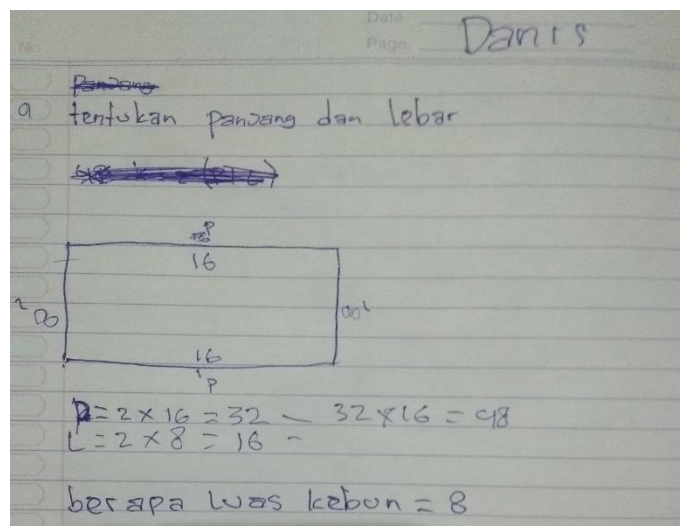 Date.
Page.
No.
Danis
a tentukan panjang dan lebar
P
16
L 8
8 L
16
P
P = 2 × 16 = 32 – 32 × 16 = 48
L = 2 × 8 = 16 –
berapa luas kebun = 8